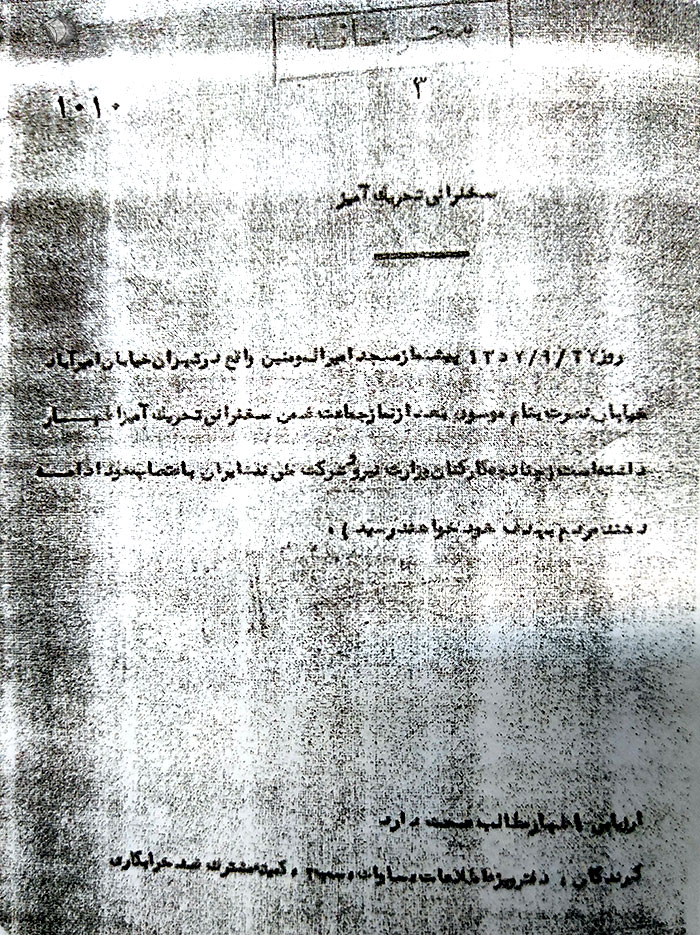 محرمانه
۳
۱۰۱۰
سخنرانی تحریک آمیز
روز ۲۷/۹/۷ پیشنماز مسجد امیرالمومنین واقع در تهران خیابان امیرآباد
خیابان نصرت بنام موسوی بعد از نماز جماعت ضمن سخنرانی تحریک آمیز اظهار
داشته است چنانچه کارکنان وزارت نیرو و شرکت ملی نفت ایران باعتصاب خود ادامه
دهند مردم بهدف خود خواهند رسید ) .
ارزیابی اظهار مطالب صحت دارد
گیرندگان ، دفتر ویژه اطلاعات ، کمیته مشترک ضد خرابکاری